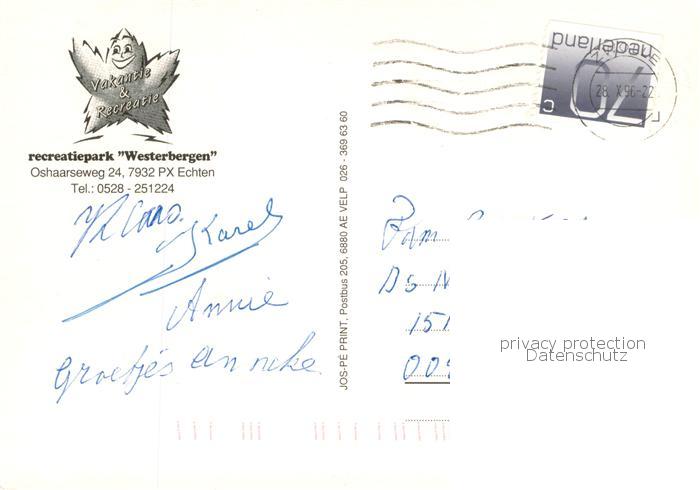 Vakantie
&
Recreatie
recreatiepark "Westerbergen"
Oshaarseweg 24, 7932 PX Echten
Tel.: 0528 - 251224
Karel
Annie
Groetjes
JOS-PÉ PRINT, Postbus 205, 6880 AE VELP 026 - 369 63 60
nederland
70
c
28. X.96-22
Fam
Ds
151
privacy protection
Datenschutz